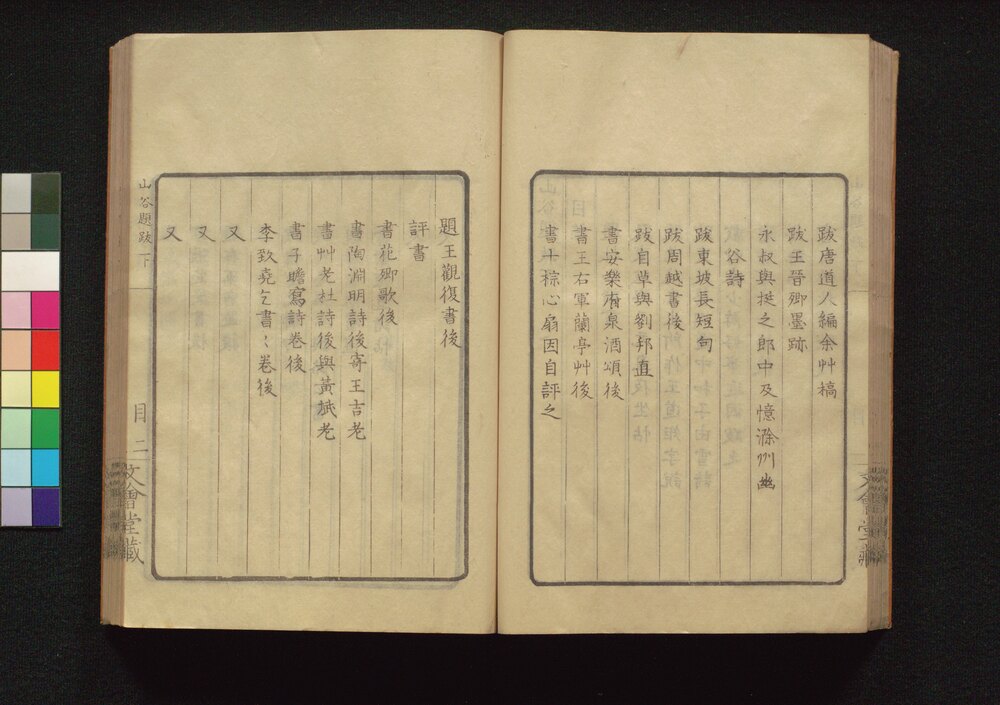 跋唐道人編余艸槁
跋王晉卿墨跡
永叔與挺之郎中及憶滁州幽
谷詩
跋東坡長短句
跋周越書後
跋自草與劉邦直
書安樂泉酒頌後
書王右軍蘭亭艸後
書十棕心扇因自評之
題王觀復書後
評書
書花卿歌後
書陶淵明詩後寄王吉老
書艸老杜詩後與黃斌老
書子瞻寫詩卷後
李致堯乞書〻卷後
又
又
又
山谷題跋下
目二
文會堂藏
文會堂藏